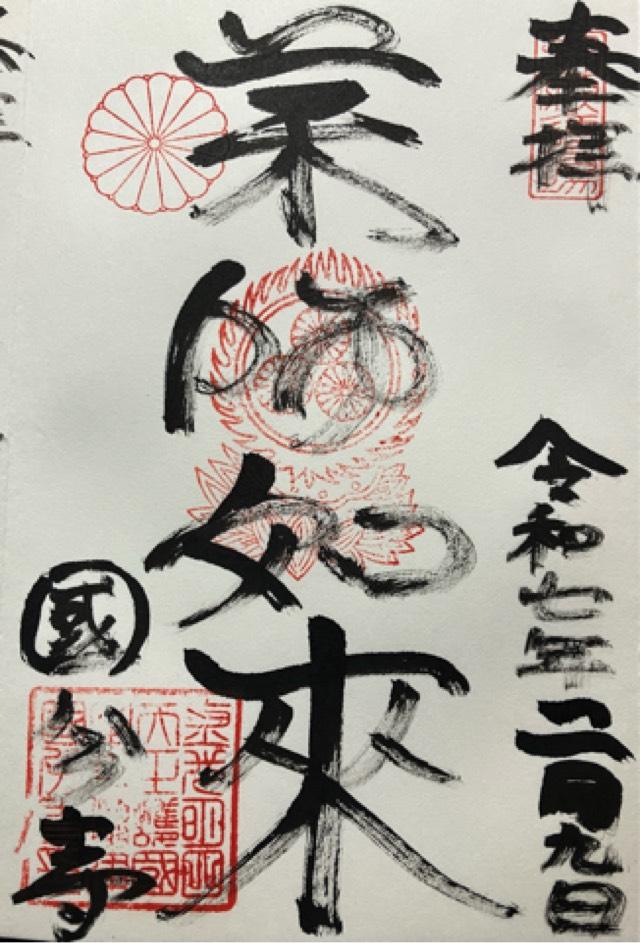 奉拝
令和七年二月九日
薬師如來
國分寺